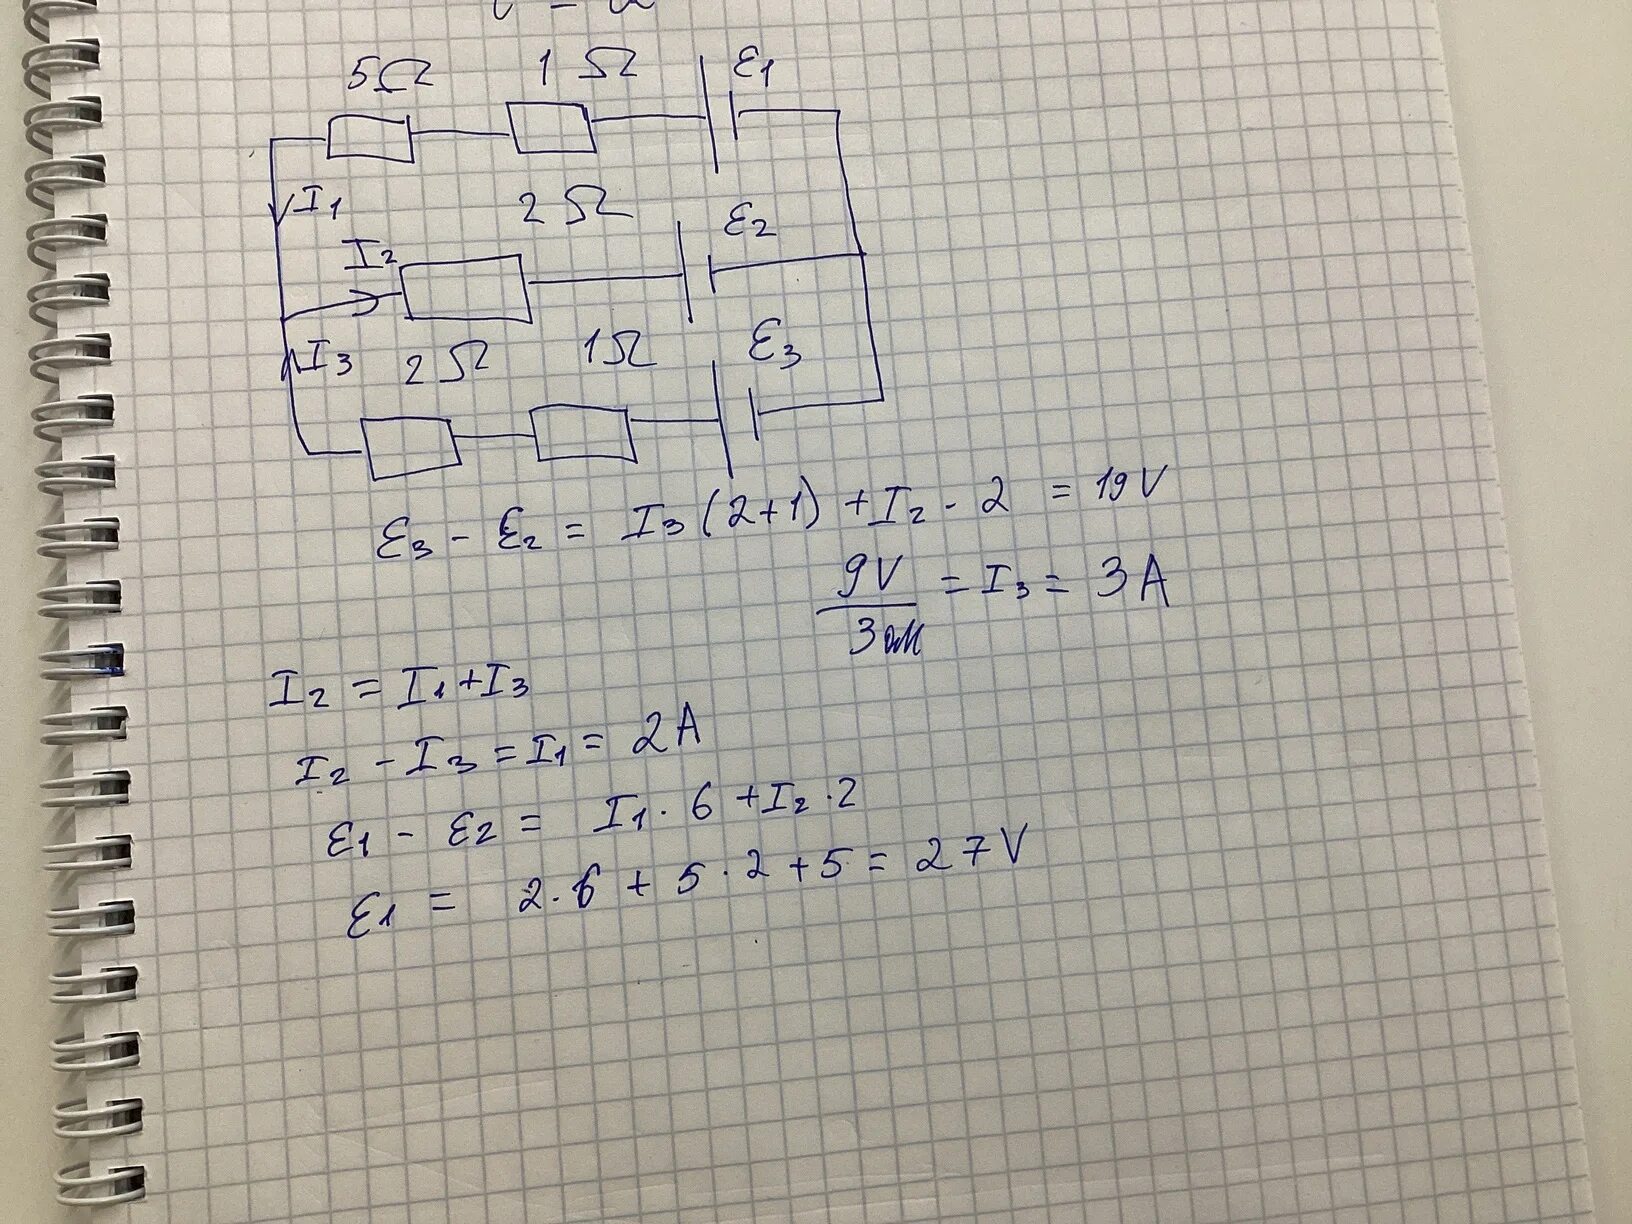 5Ω 1Ω ε1
I1
2Ω ε2
I2
I3 2Ω 1Ω ε3
ε3 - ε2 = I3 (2+1) + I2 · 2 = 19V
9V / 3 ом = I3 = 3A
I2 = I1 + I3
I2 - I3 = I1 = 2A
ε1 - ε2 = I1 · 6 + I2 · 2
ε1 = 2 · 6 + 5 · 2 + 5 = 27V